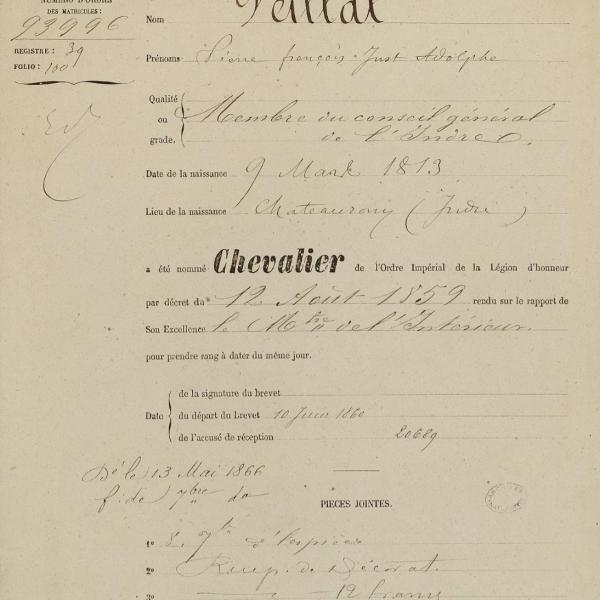 NUMÉRO D'ORDRE
DES MATRICULES :
93996
REGISTRE : 39
FOLIO : 100
Nom
Prénoms Pierre françois-Just Adolphe
Qualité
ou Membre du conseil général
grade. de l'Indre
Date de la naissance 9 Mars 1813
Lieu de la naissance Chateauroux (Indre)
a été nommé Chevalier de l'Ordre Impérial de la Légion d'honneur
par décret du 12 Août 1859 rendu sur le rapport de
Son Excellence le Mtre de l'Intérieur.
pour prendre rang à dater du même jour.
de la signature du brevet
Date du départ du brevet 10 Juin 1860
de l'accusé de réception 20689
Dé le 13 Mai 1866
f. de 7bre do
PIECES JOINTES.
1o
2o Récép. de Décorat.
3o 12 francs